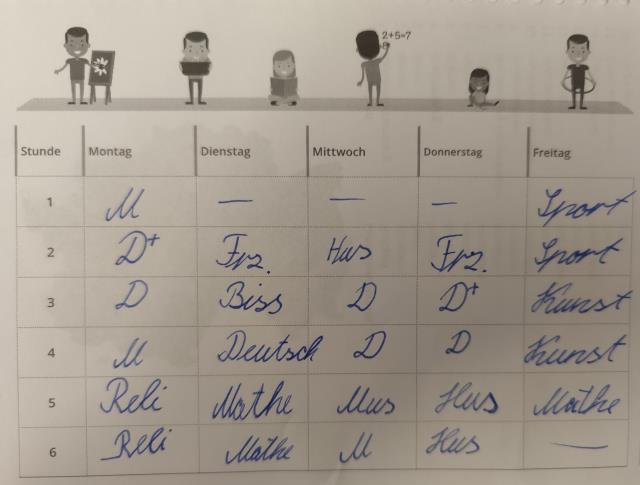 2+5=7
Stunde Montag Dienstag Mittwoch Donnerstag Freitag
1 M — — — Sport
2 D+ Frz. Hus Frz. Sport
3 D Biss D D+ Kunst
4 M Deutsch D D Kunst
5 Reli Mathe Mus Hus Mathe
6 Reli Mathe M Hus —